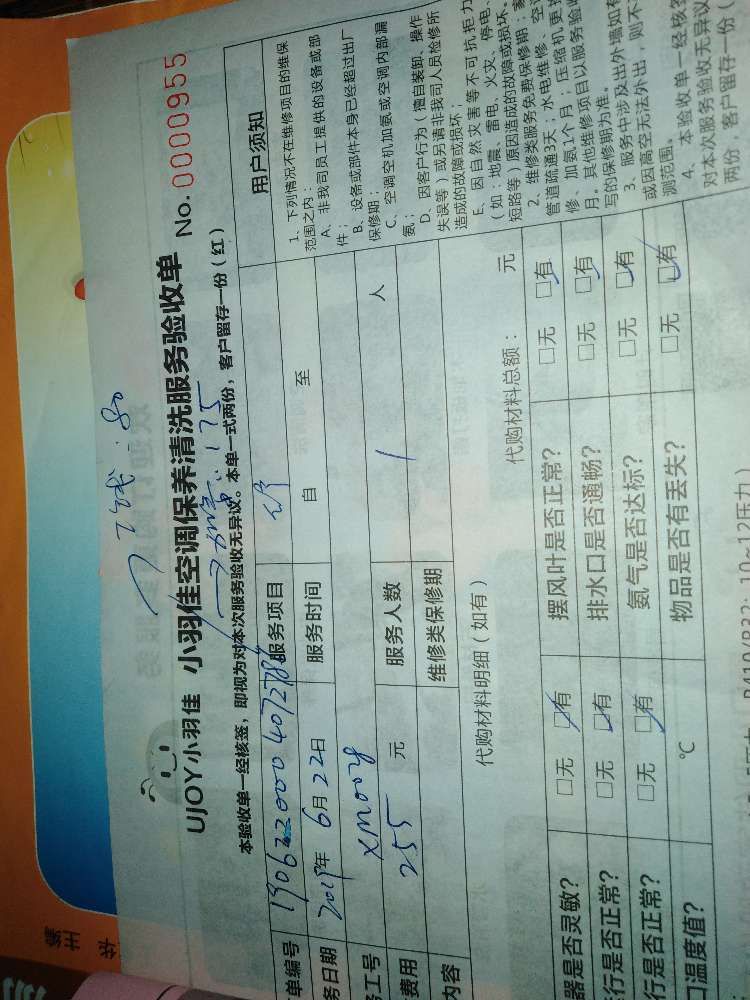 UJOY小羽佳 小羽佳空调保养清洗服务验收单 No. 0000955
本验收单一经核签，即视为对本次服务验收无异议。本单一式两份，客户留存一份（红）
:80
175
单编号 190622000 4072786 服务项目
务日期 2019年 6月 22日 服务时间 自 至
务工号 xm004
费用 255 元 服务人数 1 人
内容 维修类保修期
代购材料明细（如有） 代购材料总额： 元
器是否灵敏？ □无 □有 摆风叶是否正常？ □无 □有
行是否正常？ □无 □有 排水口是否通畅？ □无 □有
行是否正常？ □无 □有 氨气是否达标？ □无 □有
口温度值？ ℃ 物品是否有丢失？ □无 □有
用户须知
1、下列情况不在维修项目的维保
范围之内：
A、非我司员工提供的设备或部
件；
B、设备或部件本身已经超过出厂
保修期；
C、空调空机加氨或空调内部漏
氨；
D、因客户行为（擅自装卸、操作
失误等）或另请非我司人员检修所
造成的故障或损坏；
E、因自然灾害等不可抗拒力
（如：地震、雷电、火灾、停电、
短路等）原因造成的故障或损坏。
2、维修类服务免费保修期：家
管道疏通3天；水电维修、空
修、加氨1个月；压缩机更
月。其他维修项目以服务验收
写的保修期为准。
3、服务中涉及出外墙如有
或因高空无法外出，则不
测范围。
4、本验收单一经核签
对本次服务验收无异议
两份，客户留存一份（